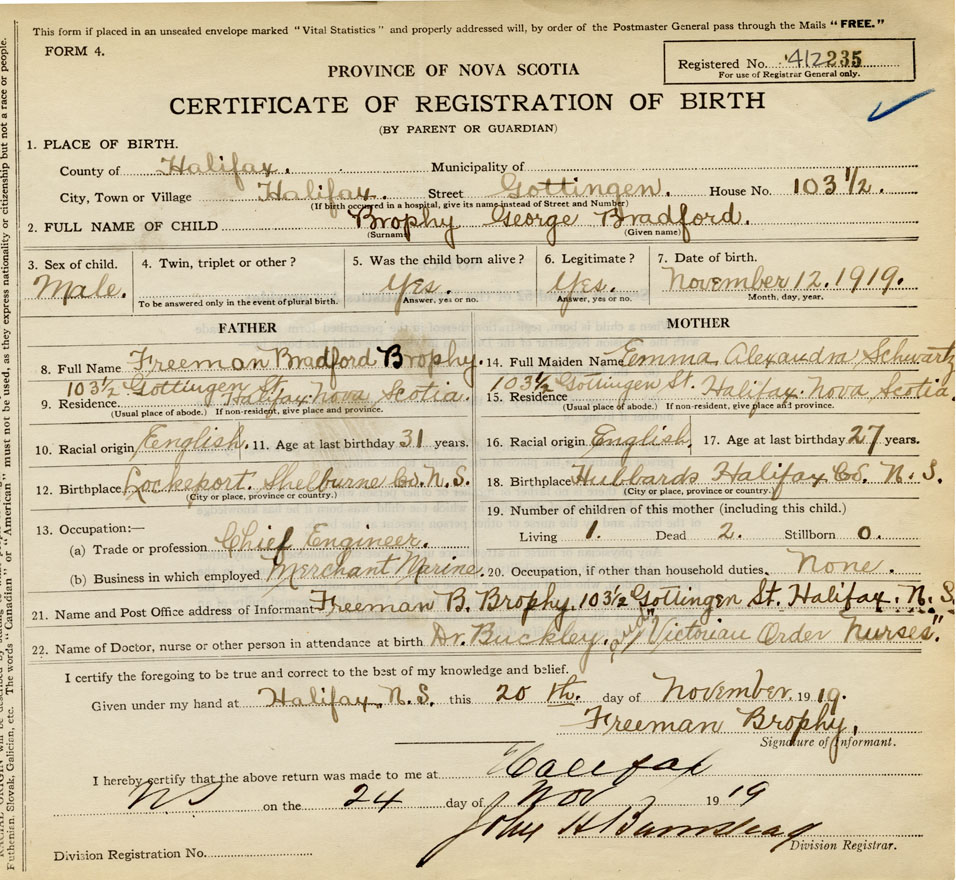 This form if placed in an unsealed envelope marked "Vital Statistics" and properly addressed will, by order of the Postmaster General pass through the Mails "FREE."
FORM 4.
Registered No. 412235
For use of Registrar General only.
PROVINCE OF NOVA SCOTIA
CERTIFICATE OF REGISTRATION OF BIRTH
(BY PARENT OR GUARDIAN)
1. PLACE OF BIRTH.
County of Halifax. Municipality of
City, Town or Village Halifax. Street Gottingen. House No. 103 1/2.
(If birth occured in a hospital, give its name instead of Street and Number)
2. FULL NAME OF CHILD Brophy George Bradford.
(Surname) (Given name)
3. Sex of child. 4. Twin, triplet or other? 5. Was the child born alive? 6. Legitimate? 7. Date of birth.
Male. Yes. Yes. November 12, 1919.
To be answered only in the event of plural birth. Answer, yes or no. Answer, yes or no. Month, day, year.
FATHER
8. Full Name Freeman Bradford Brophy.
103½ Gottingen St.
9. Residence Halifax Nova Scotia.
(Usual place of abode.) If non-resident, give place and province.
10. Racial origin English. 11. Age at last birthday 31 years.
12. Birthplace Lockeport. Shelburne Co. N. S.
(City or place, province or country.)
13. Occupation:—
(a) Trade or profession Chief Engineer.
(b) Business in which employed Merchant Marine.
MOTHER
14. Full Maiden Name Emma Alexandra Schwartz
103½ Gottingen St. Halifax Nova Scotia.
15. Residence
(Usual place of abode.) If non-resident, give place and province.
16. Racial origin English. 17. Age at last birthday 27 years.
18. Birthplace Hubbards Halifax Co. N. S.
(City or place, province or country.)
19. Number of children of this mother (including this child.)
Living 1. Dead 2. Stillborn 0.
20. Occupation, if other than household duties. None.
21. Name and Post Office address of Informant Freeman B. Brophy, 103½ Gottingen St. Halifax. N. S.
22. Name of Doctor, nurse or other person in attendance at birth Dr. Buckley. and "Victorian Order Nurses".
I certify the foregoing to be true and correct to the best of my knowledge and belief.
Given under my hand at Halifax, N. S. this 20 th. day of November 1919.
Freeman Brophy,
Signature of Informant.
I hereby certify that the above return was made to me at Halifax
NS on the 24 day of Nov 1919
John H
Division Registrar.
Division Registration No.
Ruthenian, Slovak, Galician, etc. The words "Canadian" or "American" must not be used, as they express nationality or citizenship but not a race or people.